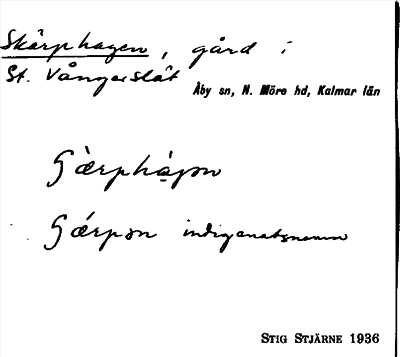 Skärphagen, gård i
St. Vångerslät
Åby sn, N. Möre hd, Kalmar län
indigenatsnamn
STIG STJÄRNE 1936